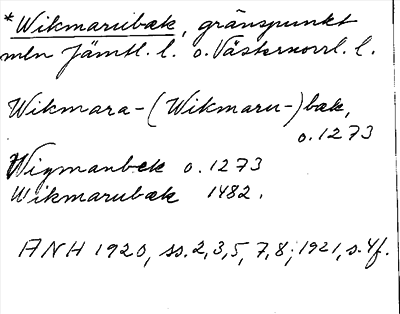 *Wikmarubæk, gränspunkt
mln Jämtl. l. o. Västernorrl. l.
Wikmara-(Wikmaru-)bæk,
o. 1273
Wigmanbek o. 1273
Wikmarubæk 1482.
ANH 1920, ss. 2,3,5, 7,8; 1921, s. 4f.